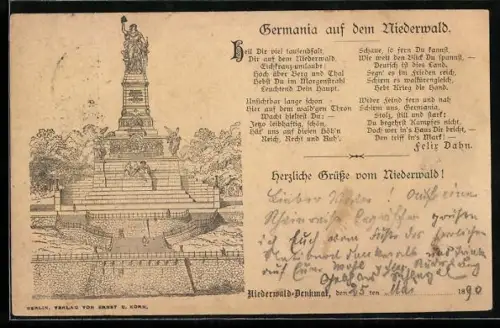 Germania auf dem Niederwald.
Heil Dir viel tausendfalt,
Dir auf dem Niederwald,
Eichkranz-umlaubt!
Hoch über Berg und Thal
Hebst Du im Morgenstrahl
Leuchtend Dein Haupt.
Unsichtbar lange schon
Hier auf dem wald'gen Thron
Wacht hieltest Du: –
Jetzo leibhaftig, schön,
Hüt' uns auf diesen Höh'n
Reich, Recht und Ruh'.
Schaue, so fern Du kannst
Wie weit den Blick Du spannst, –
Deutsch ist dies Land.
Segn' es im Frieden reich,
Schirm es walkürengleich,
Hebt Krieg die Hand.
Wider Feind fern und nah
Schirm uns, Germania,
Stolz, still und stark:
Du begehrst Kampfes nicht,
Doch wer in's Haus Dir bricht, –
Den triff in's Mark! –
Felix Dahn.
Herzliche Grüße vom Niederwald!
Lieber! Auf einer
grüßen
ich Euch vom des herrlichen
auf Euer Wohl
Niederwald-Denkmal, den 25 ten Mai 1890
BERLIN, VERLAG VON ERNST S. KORN.